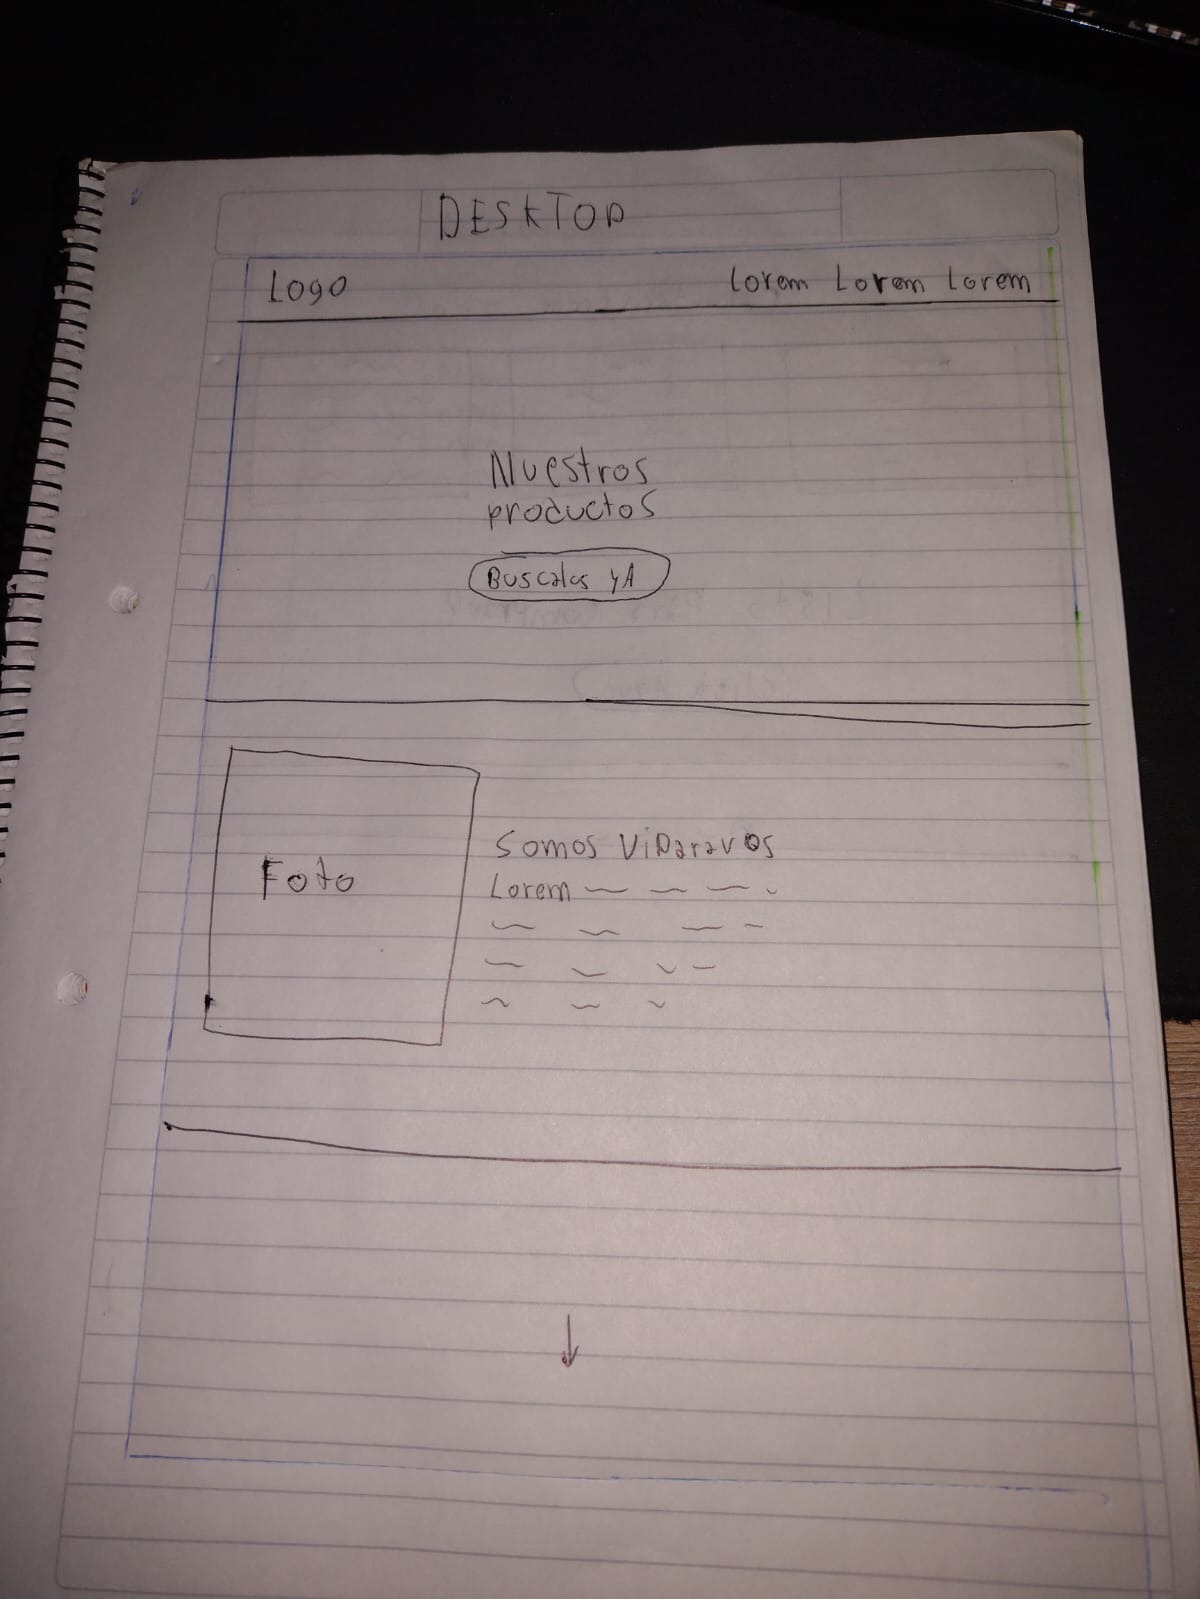 DESKTOP
Logo
Lorem Lorem Lorem
Nuestros
productos
Buscalos YA
Foto
Somos ViDaravos
Lorem